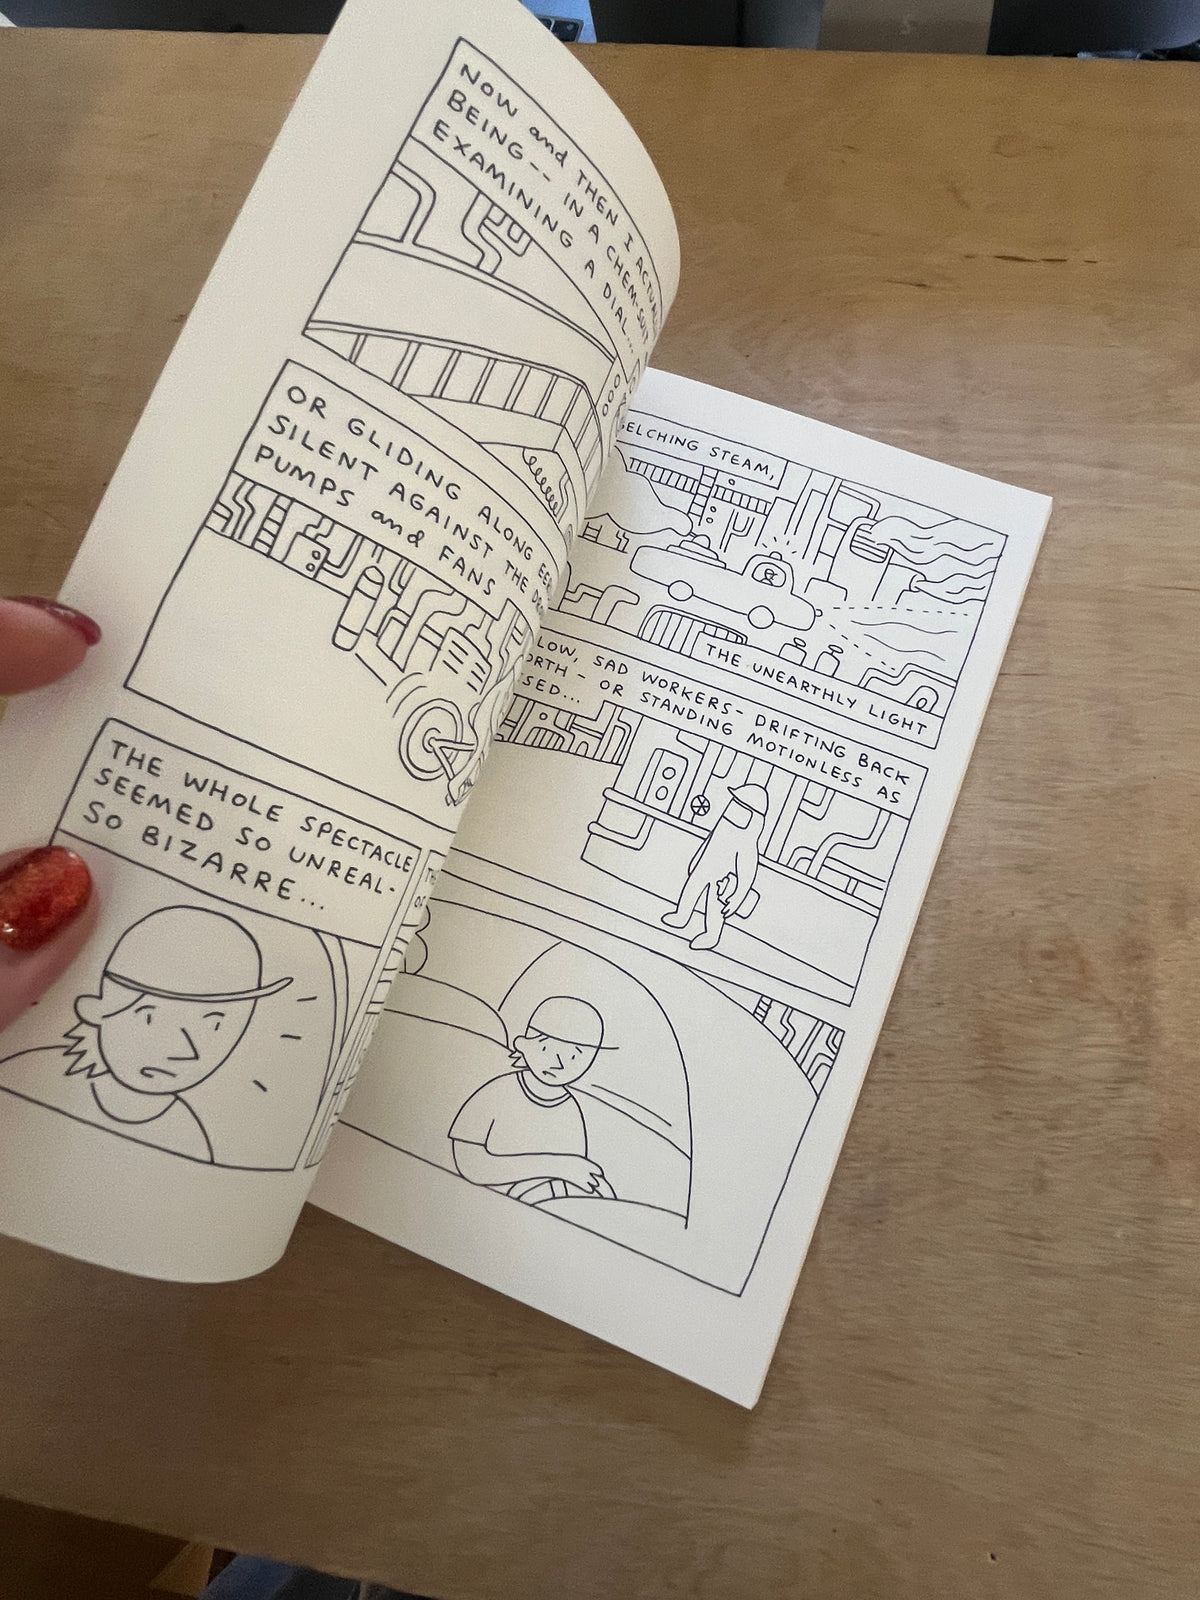 NOW and THEN I
BEING-- IN A CHEM-SUIT
EXAMINING A DIAL...
OR GLIDING ALONG
SILENT AGAINST THE
PUMPS and FANS
THE WHOLE SPECTACLE
SEEMED SO UNREAL-
SO BIZARRE...
BELCHING STEAM,
THE UNEARTHLY LIGHT
SAD WORKERS- DRIFTING BACK
- OR STANDING MOTIONLESS AS